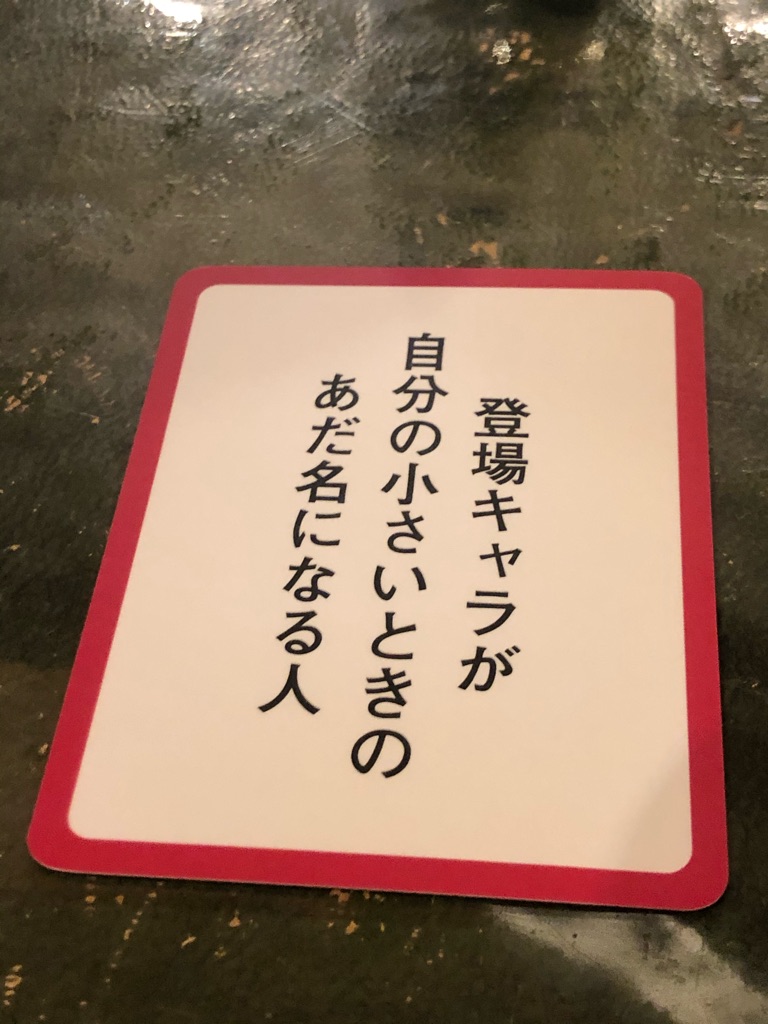 登場キャラが
自分の小さいときの
あだ名になる人